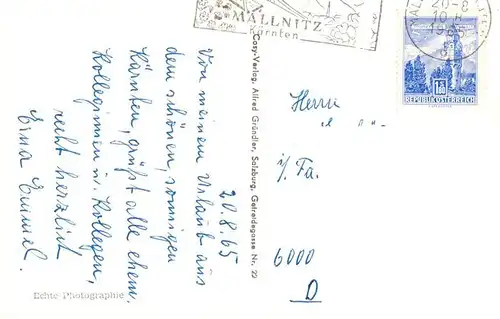 MALLNITZ
Kärnten
20-8
1965
1.80
REPUBLIK ÖSTERREICH
20.8.65
Von meinem Urlaub aus
dem schönen, sonnigen
Kärnten, grüßt alle ehem.
Kolleginnen u. Kollegen,
recht herzlich
Erna
Cosy-Verlag, Alfred Gründler, Salzburg, Getreidegasse Nr. 22
Echte Photographie
Herrn
i/Fa.
6000
D